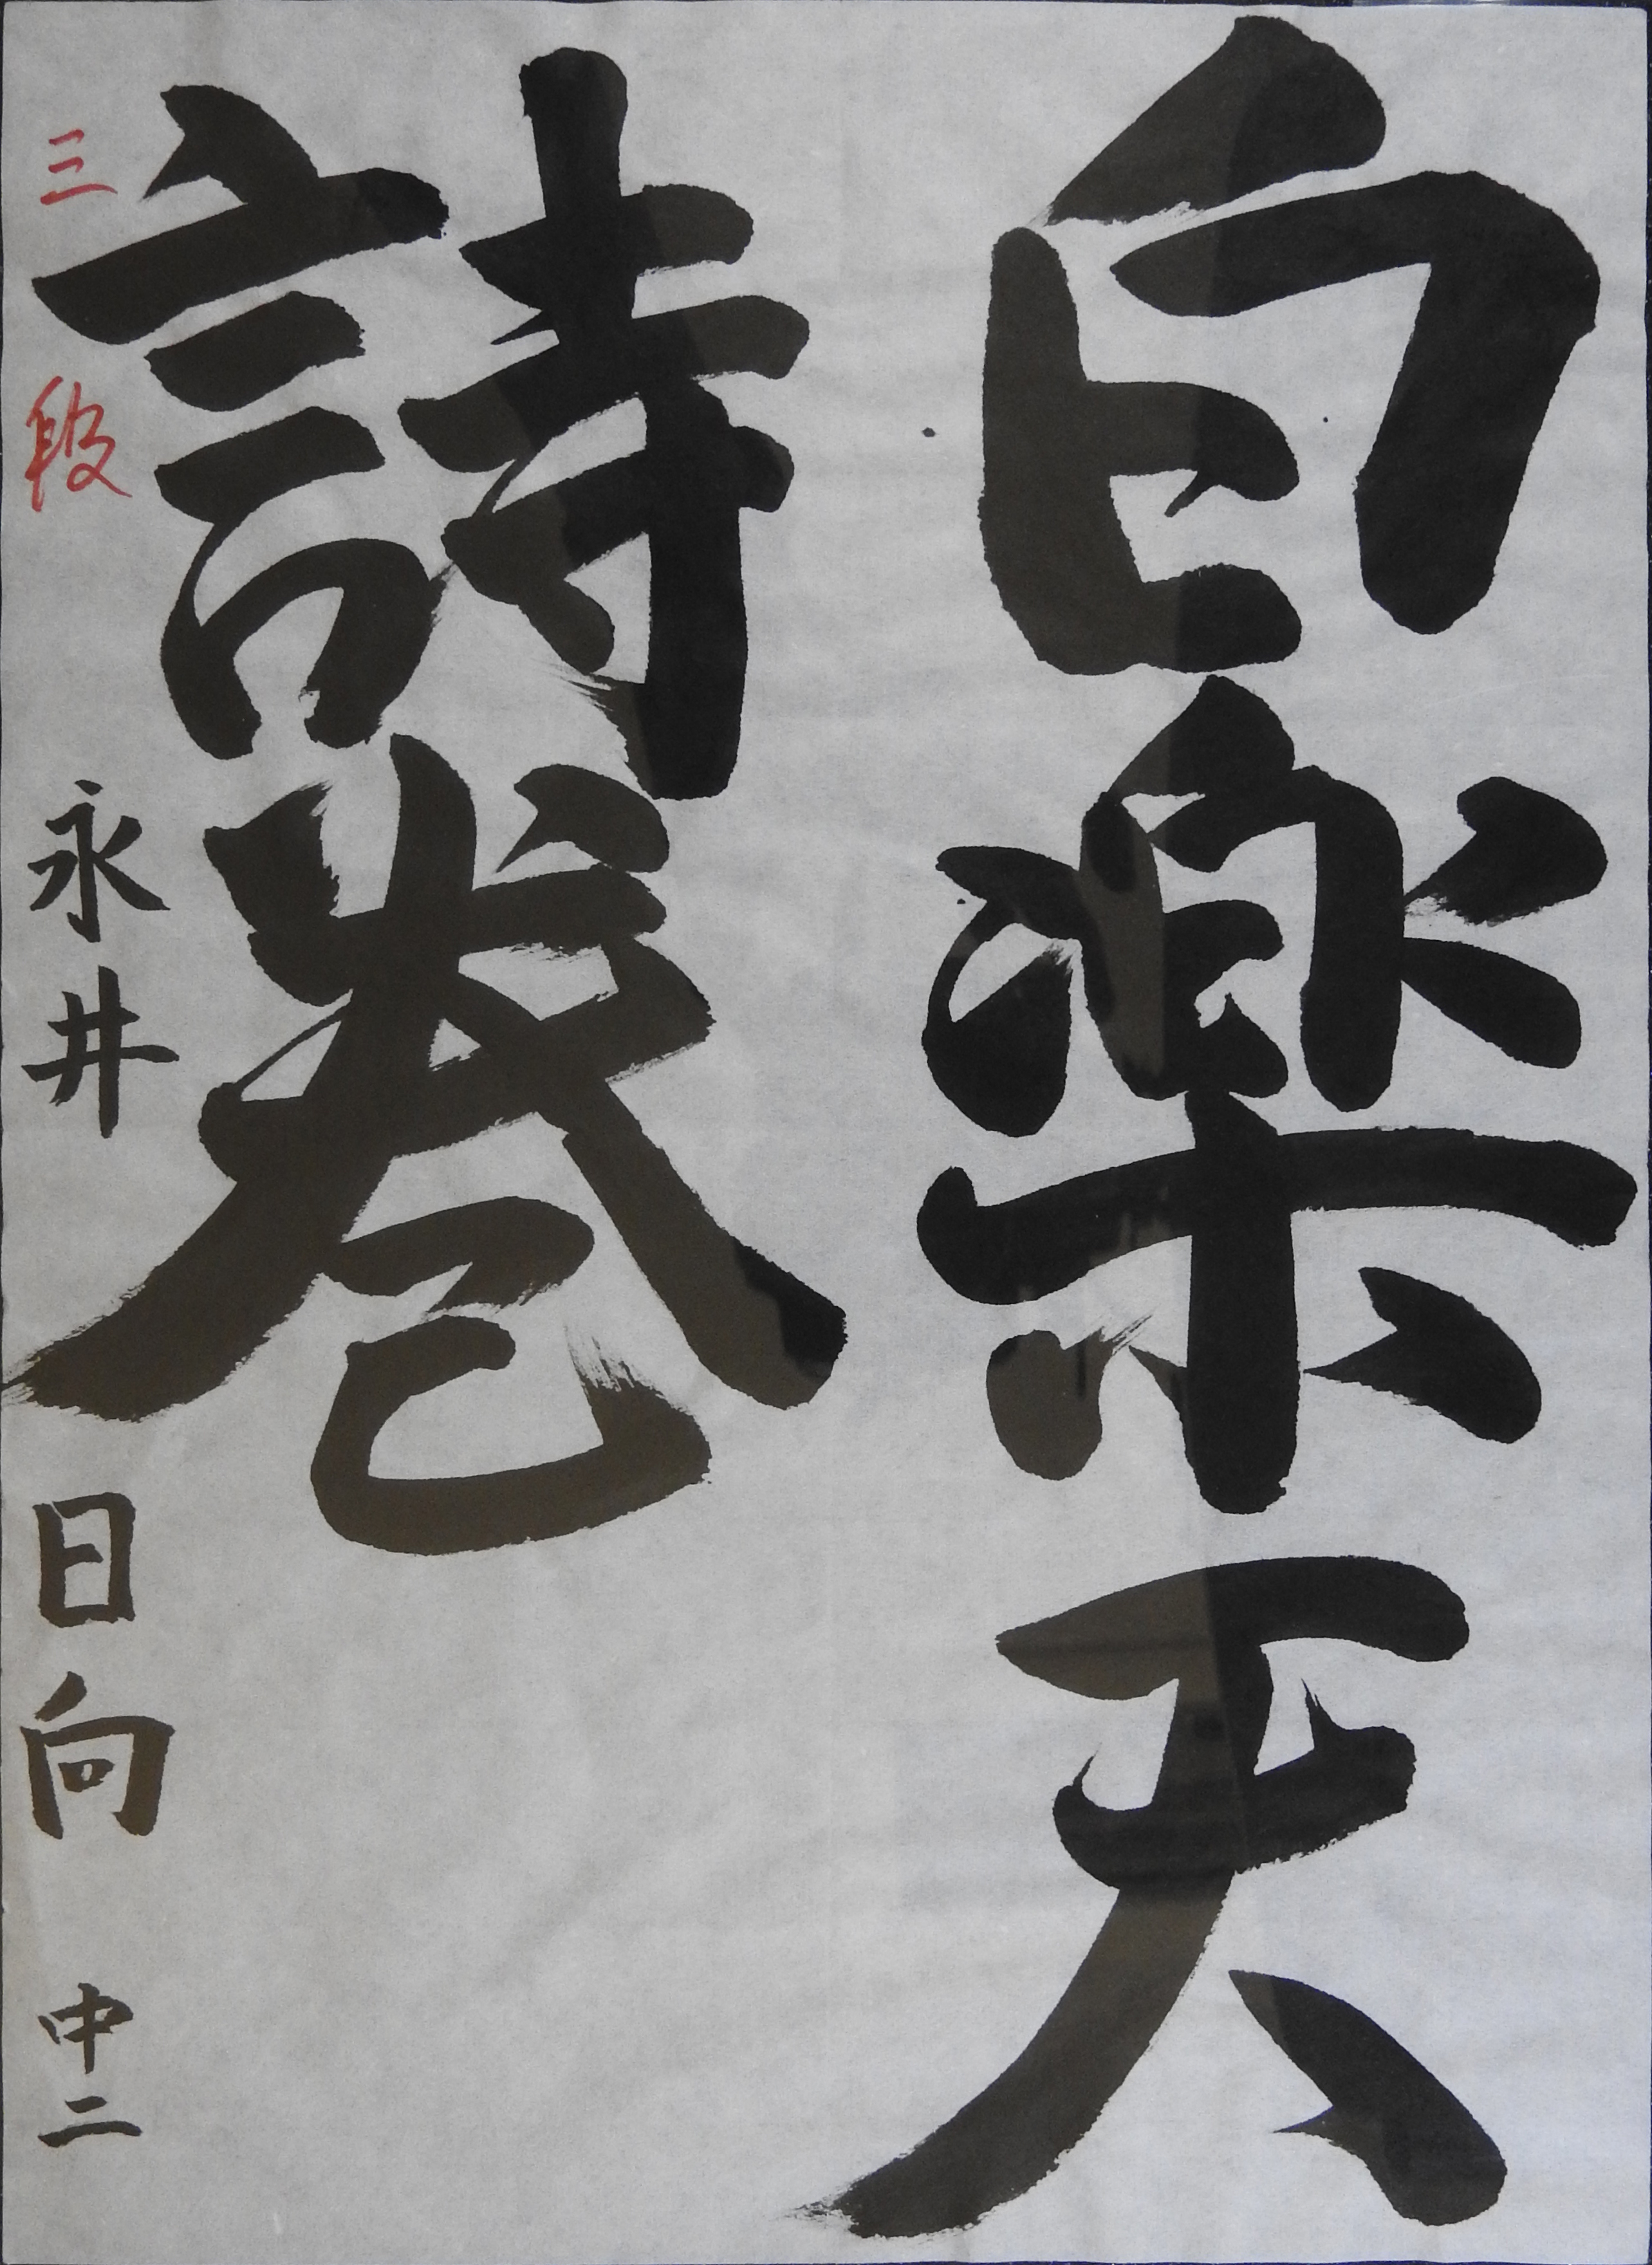 白楽天
詩巻
三段
永井 日向 中二